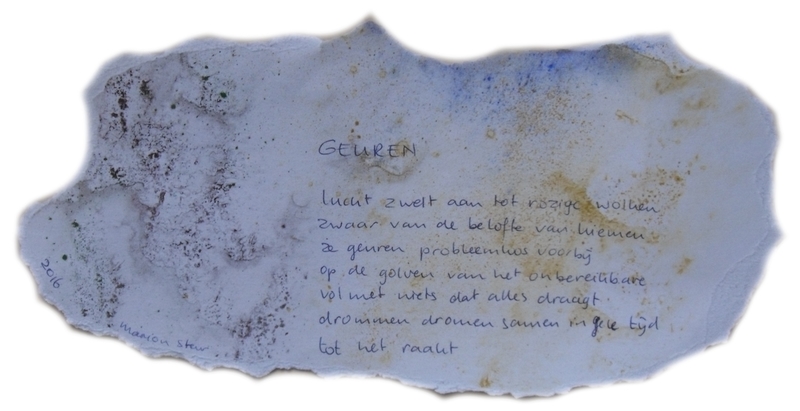 GEUREN
lucht zwelt aan tot rozige wolken
zwaar van de belofte van bloemen
ze geuren probleemloos voorbij
op de golven van het onbereikbare
vol met niets dat alles draagt
drommen dromen samen in gele tijd
tot het raakt
2016
Marion Steur